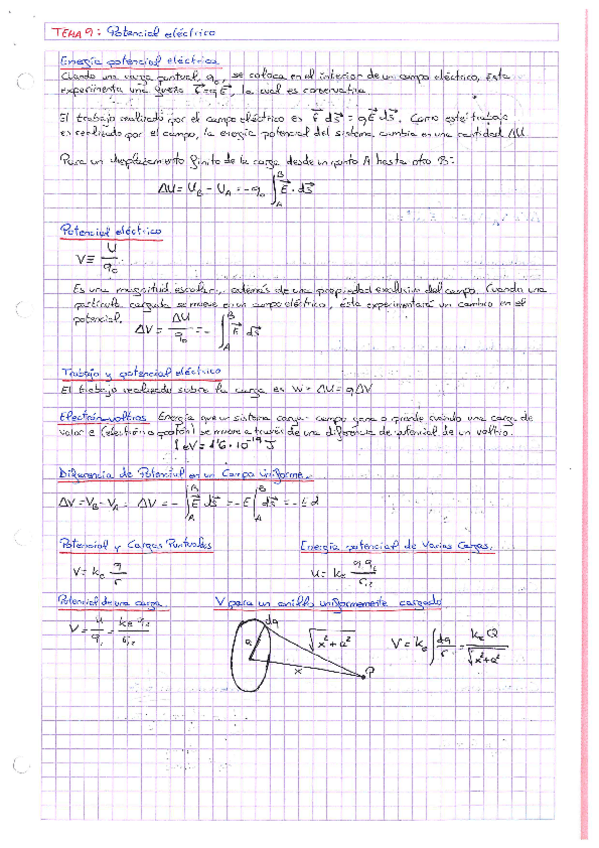 TEMA 9: Potencial eléctrico
Energía potencial eléctrica
Cuando una carga puntual, q₀, se coloca en el interior de un campo eléctrico, ésta
experimenta una fuerza F⃗=q₀E⃗, la cual es conservativa.
El trabajo realizado por el campo eléctrico es F⃗ ds⃗ = qE⃗ ds⃗. Como este trabajo
es realizado por el campo, la energía potencial del sistema cambia en una cantidad ΔU
Para un desplazamiento finito de la carga desde un punto A hasta otro B:
ΔU = U_B - U_A = -q₀ ∫_A^B E⃗ · ds⃗
Potencial eléctrico
V ≡ U/q₀
Es una magnitud escalar, además de una propiedad exclusiva del campo. Cuando una
partícula cargada se mueve en un campo eléctrico, ésta experimentará un cambio en el
potencial. ΔV = ΔU/q₀ = - ∫_A^B E⃗ ds⃗
Trabajo y potencial eléctrico
El trabajo realizado sobre la carga es W = ΔU = qΔV
Electrón-voltios Energía que un sistema carga-campo gana o pierde cuando una carga de
valor e (electrón o protón) se mueve a través de una diferencia de potencial de un voltio.
1 eV = 1'6 · 10⁻¹⁹ J
Diferencia de Potencial en un Campo Uniforme.
ΔV = V_B - V_A ΔV = - ∫ E⃗ ds⃗ = -E ∫_A^B ds⃗ = -Ed
Potencial y Cargas Puntuales Energía potencial de Varias Cargas.
V = kₑ q/r U = kₑ
Potencial de una carga V para un anillo uniformemente cargado
V = U/q₁ = dq a √x²+a² x P V = kₑ ∫ dq/r = kₑQ/√x²+a²